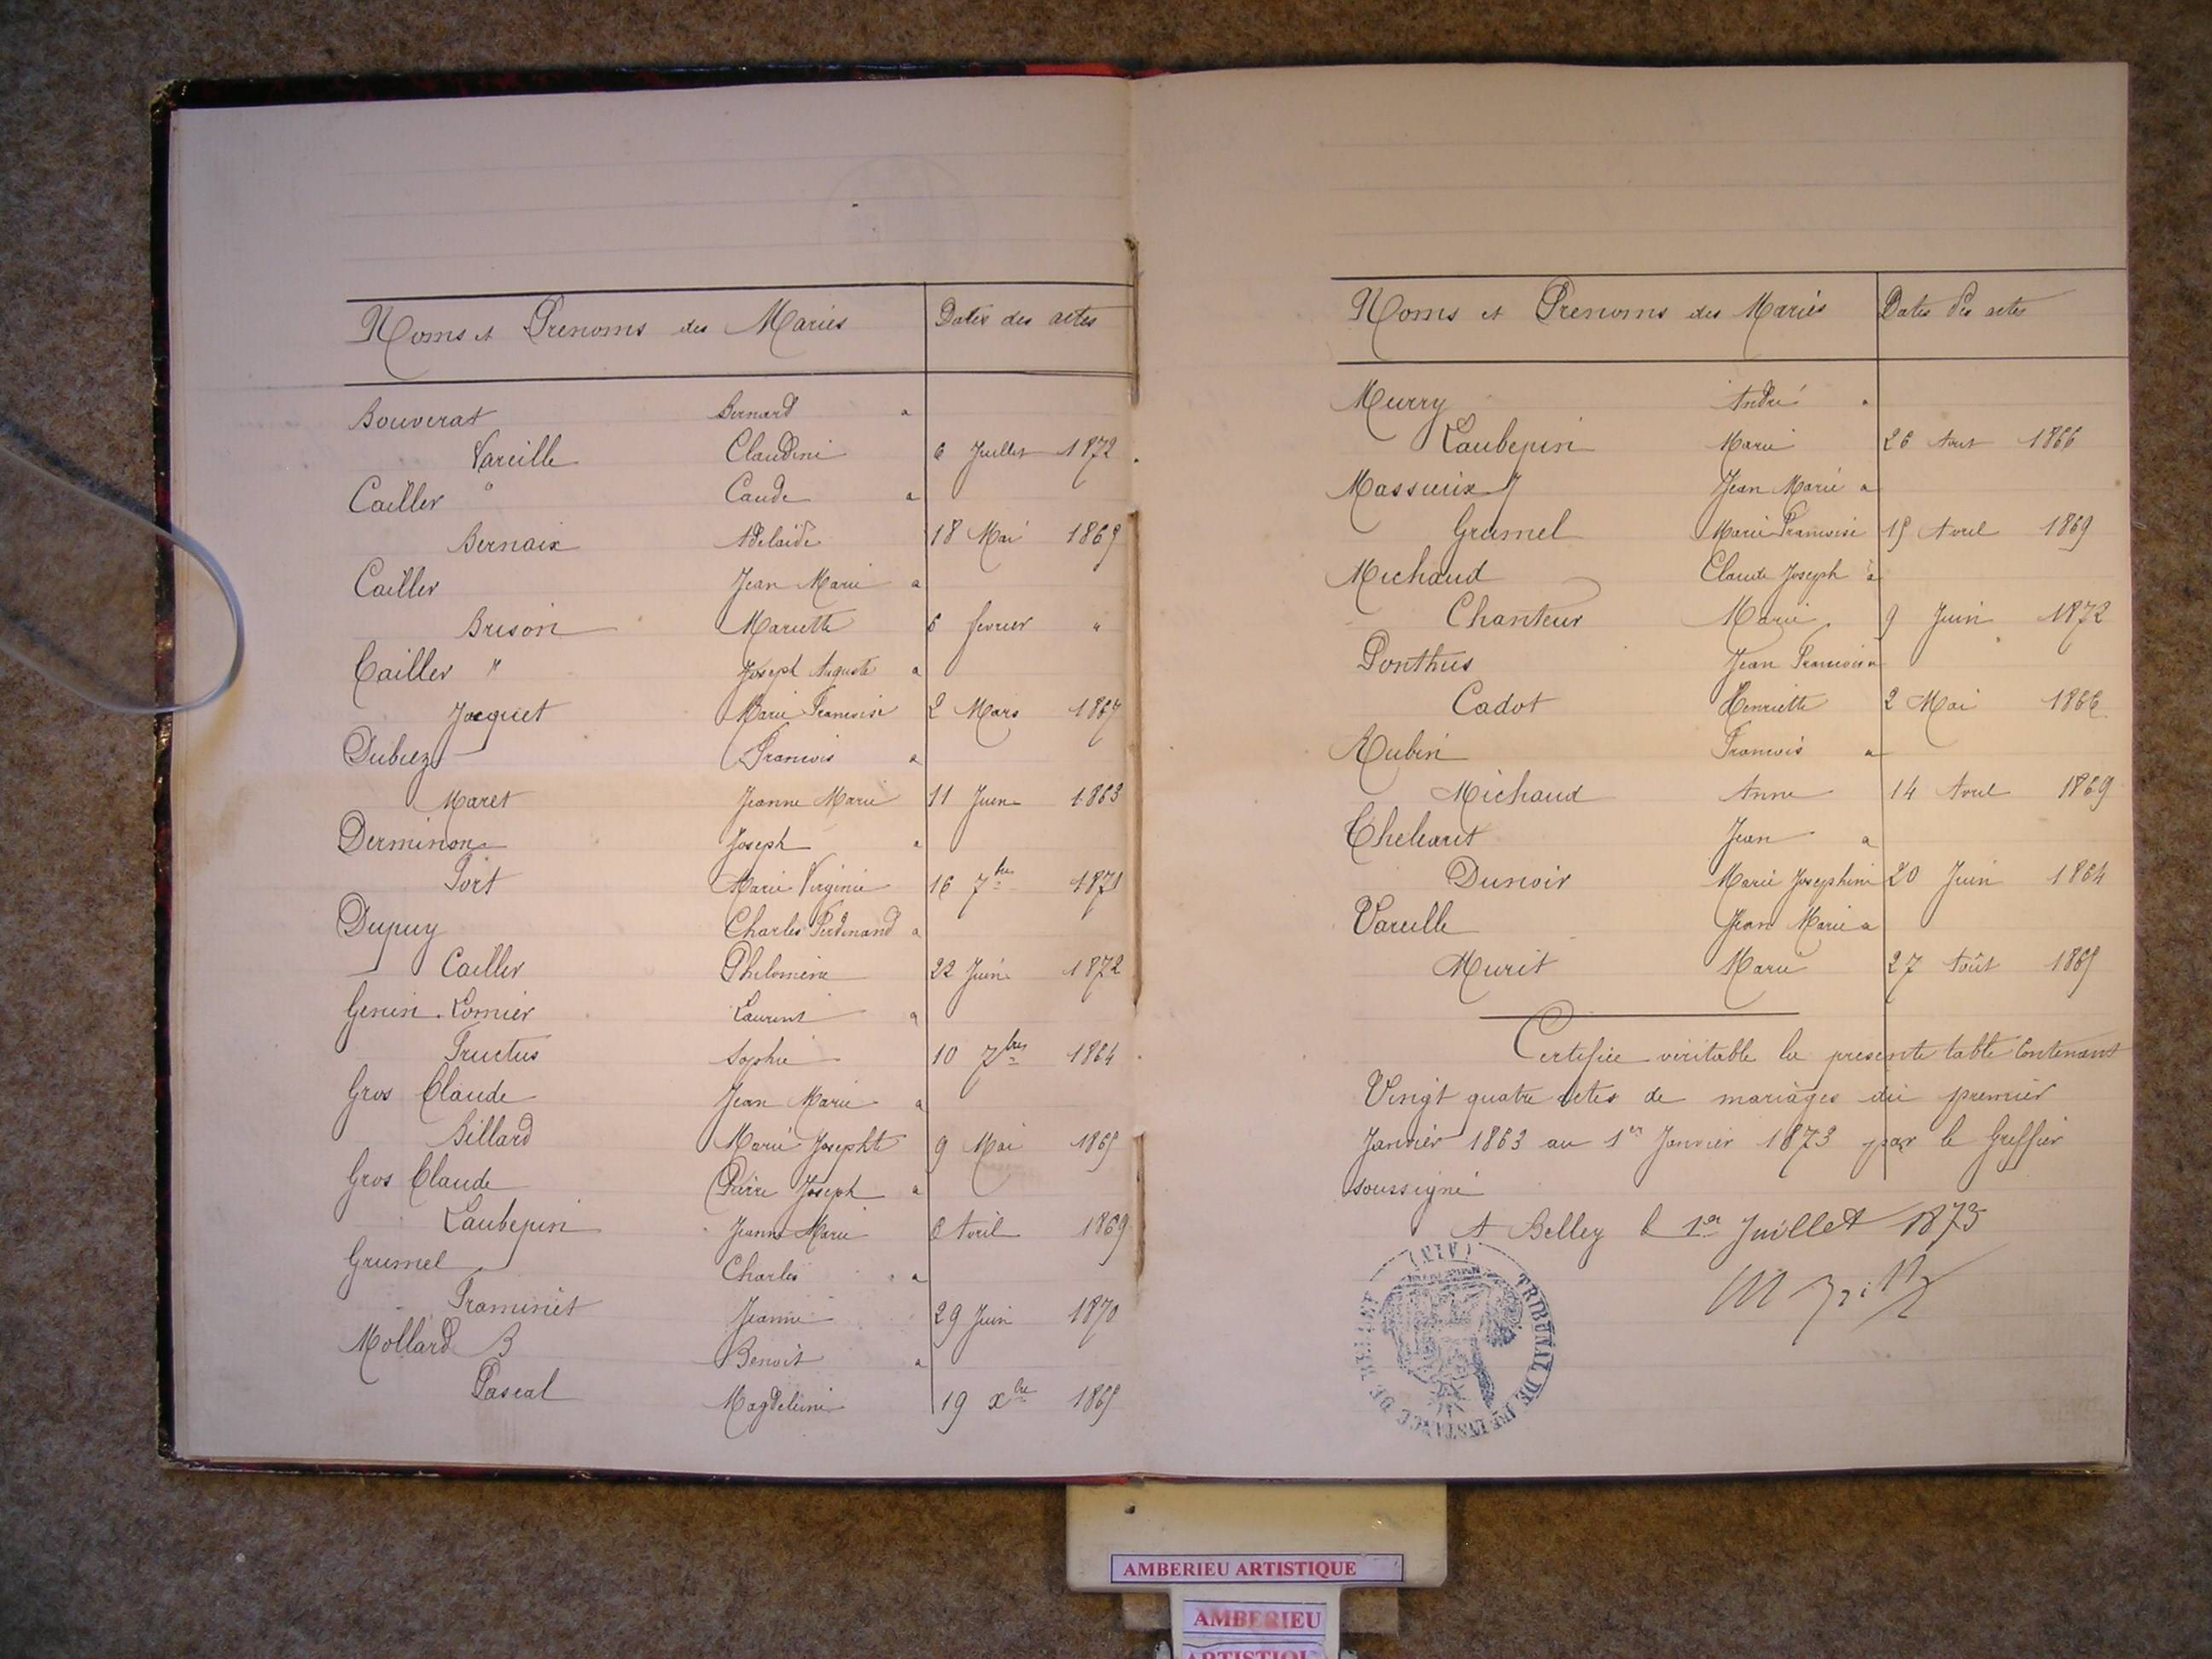 Noms et Prenoms des Mariés Dates des actes
Bouverat Bernard a
Vareille Claudine 6 Juillet 1872
Cailler Caude a
Bernaix Adelaïde 18 Mai 1869
Cailler Jean Marie a
Brison Mariette 6 fevrier "
Cailler Joseph Auguste a
Jacquet Marie Francoise 2 Mars 1867
Dubiez Francois a
Maret Jeanne Marie 11 Juin 1863
Derminon Joseph a
Port Marie Virginie 16 7bre 1871
Dupuy Charles Ferdinand a
Cailler Philomene 22 Juin 1872
Genin Lomier Laurent a
Fructus Sophie 10 7bre 1864
Gros Claude Jean Marie a
Billard Marie Josephte 9 Mai 1865
Gros Claude Pierre Joseph a
Laubepin Jeanne Marie 6 Avril 1869
Grumel Charles a
Framinet Jeanne 29 Juin 1870
Mollard B Benoit a
Pascal Magdeleine 19 xbre 1865
Noms et Prenoms des Mariés Dates des actes
Murry André
Laubepin Marie 26 Aout 1866
Massieux J Jean Marie a
Grumel Marie Francoise 15 Avril 1869
Michaud Claude Joseph à
Chanteur Marie 9 Juin 1872
Ponthus Jean Francois a
Cadot Henriette 2 Mai 1866
Rubin Francois a
Michaud Anne 14 Avril 1869
Jean a
Dunoir Marie Josephine 20 Juin 1864
Vareille Jean Marie a
Murit Marie 27 Août 1865
Certifiée véritable la presente table Contenant
Vingt quatre actes de mariages du premier
Janvier 1863 au 1er Janvier 1873 par le Greffier
soussigné
A Belley le 1er Juillet 1873
TRIBUNAL DE 1RE INSTANCE DE BELLEY (AIN)
AMBERIEU ARTISTIQUE
AMBERIEU
ARTISTIQU